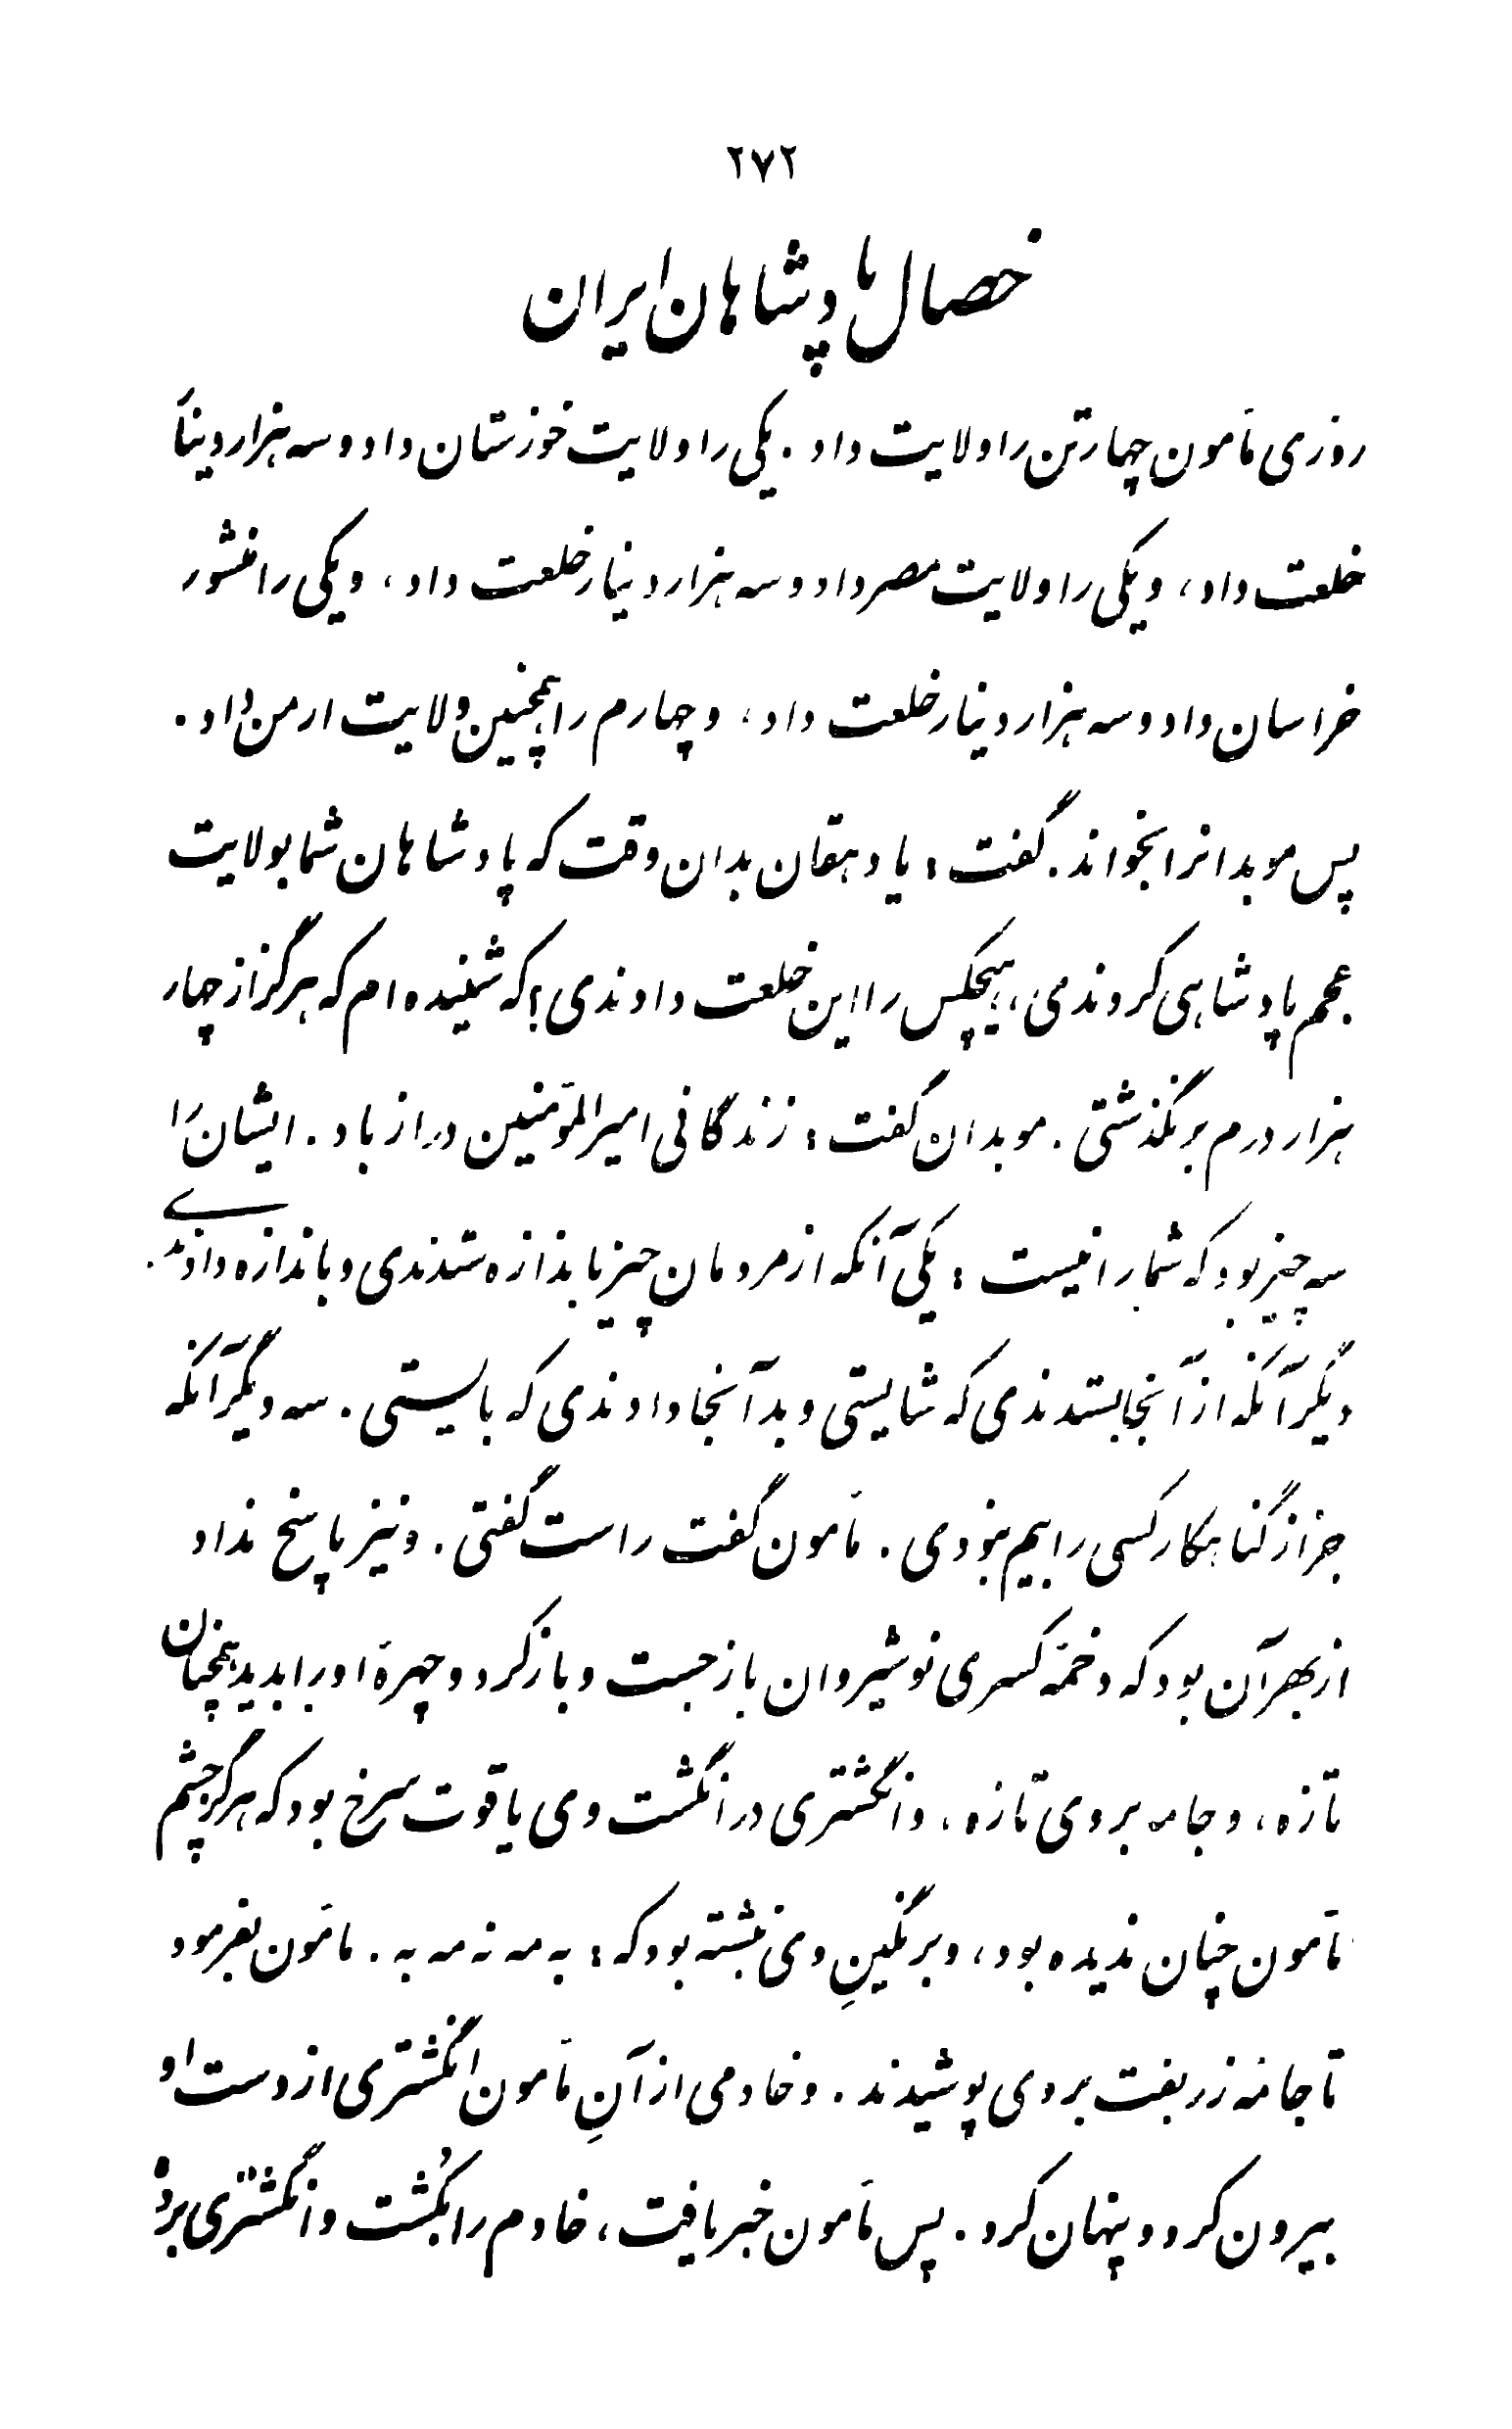 ۲۷۲
خصال پادشاهان ایران
روزی مأمون چهار تن را ولایت داد. یکی را ولایت خوزستان داد و سه هزار دینار
خلعت داد، و یکی را ولایت مصر داد و سه هزار دینار خلعت داد، و یکی را منشور
خراسان داد و سه هزار دینار خلعت داد، و چهارم را همچنین ولایت ارمن داد.
پس موبدان را بخواند. گفت: یا دهقان بدان وقت که پادشاهان شما بولایت
عجم پادشاهی کردندی، هیچکس را این خلعت دادندی؟ که شنیده‌ام که هرگز از چهار
هزار درم برنگذشتی. موبدان گفت: زندگانی امیرالمؤمنین دراز باد. ایشان را
سه چیز بود که شما را نیست: یکی آنکه از مردمان چیز باندازه ستدندی و باندازه دادندی.
دیگر آنکه از آنجا بستدندی که شایستی و بدآنجا دادندی که بایستی. سه دیگر آنکه
جز از گناهکار کسی را بیم نبودی. مأمون گفت راست گفتی. و نیز پاسخ نداد
از بهر آن بود که دخمهٔ کسری نوشیروان بازجست و باز کرد و چهرهٔ او را بدید همچنان
تازه، و جامه بر وی تازه، و انگشتری در انگشت وی یاقوت سرخ بود که هرگز چشم
مأمون چنان ندیده بود، و بر نگینِ وی نبشته بود که: به مه نه مه به. مأمون بفرمود
تا جامهٔ زربفت بر وی پوشیدند. و خادمی از آنِ مأمون انگشتری از دست او
بیرون کرد و پنهان کرد. پس مأمون خبر یافت، خادم را بکُشت و انگشتری برد